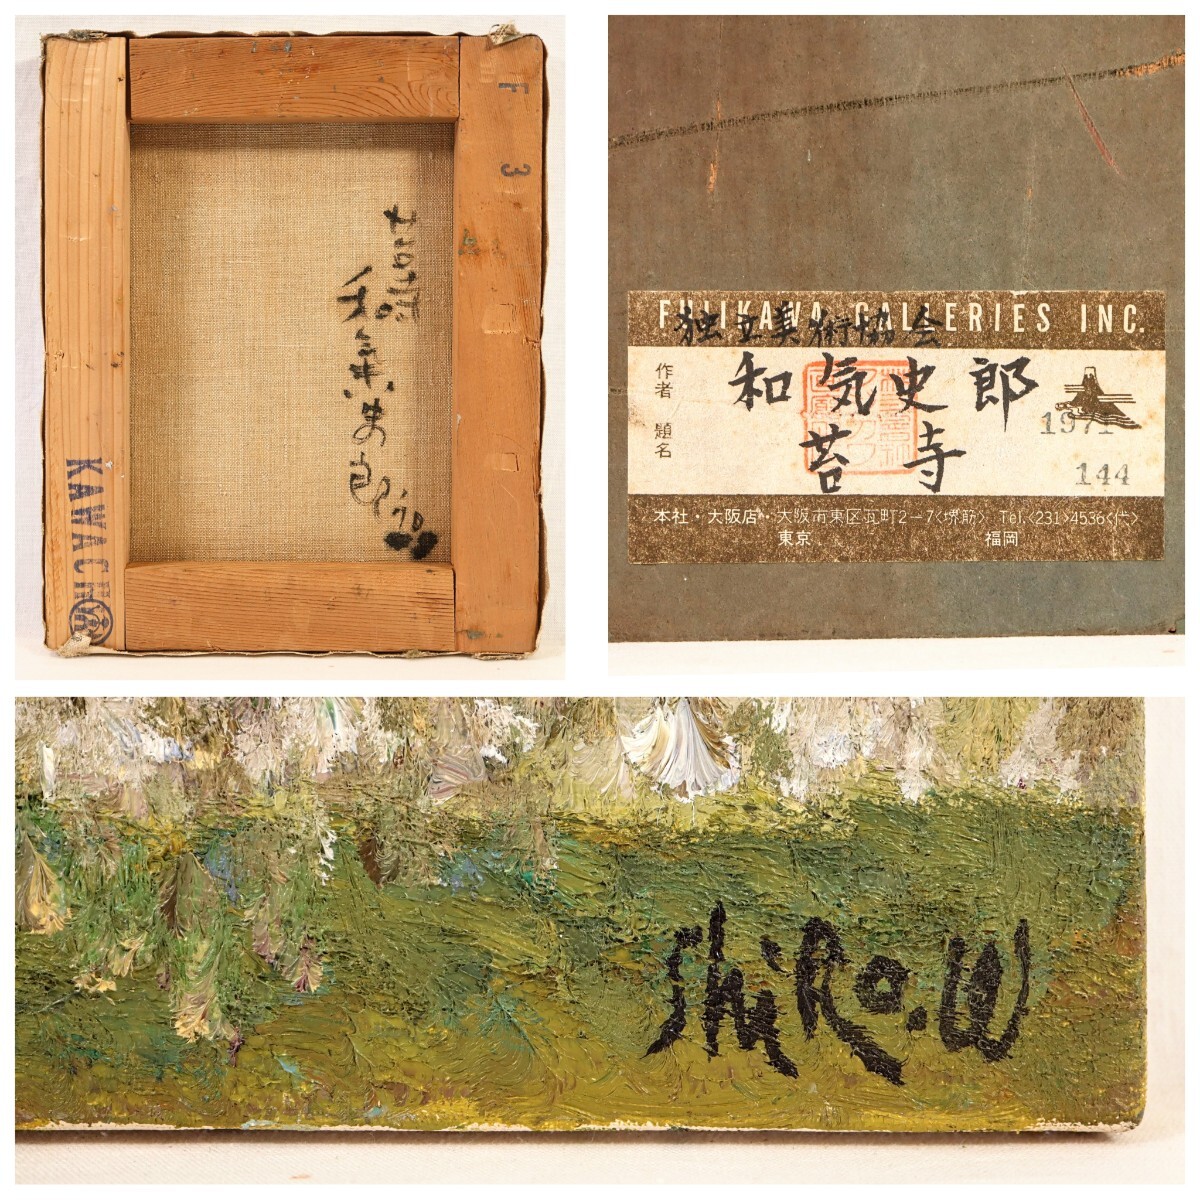 F 3
苔寺
和気史郎 '70
KAWACHI
FUJIKAWA GALLERIES INC.
独立美術協会
作者 和気史郎
題名 苔寺
1971
144
本社・大阪店・大阪市東区瓦町2-7<堺筋> Tel.<231>4536<代>
東京 福岡
Shiro.W